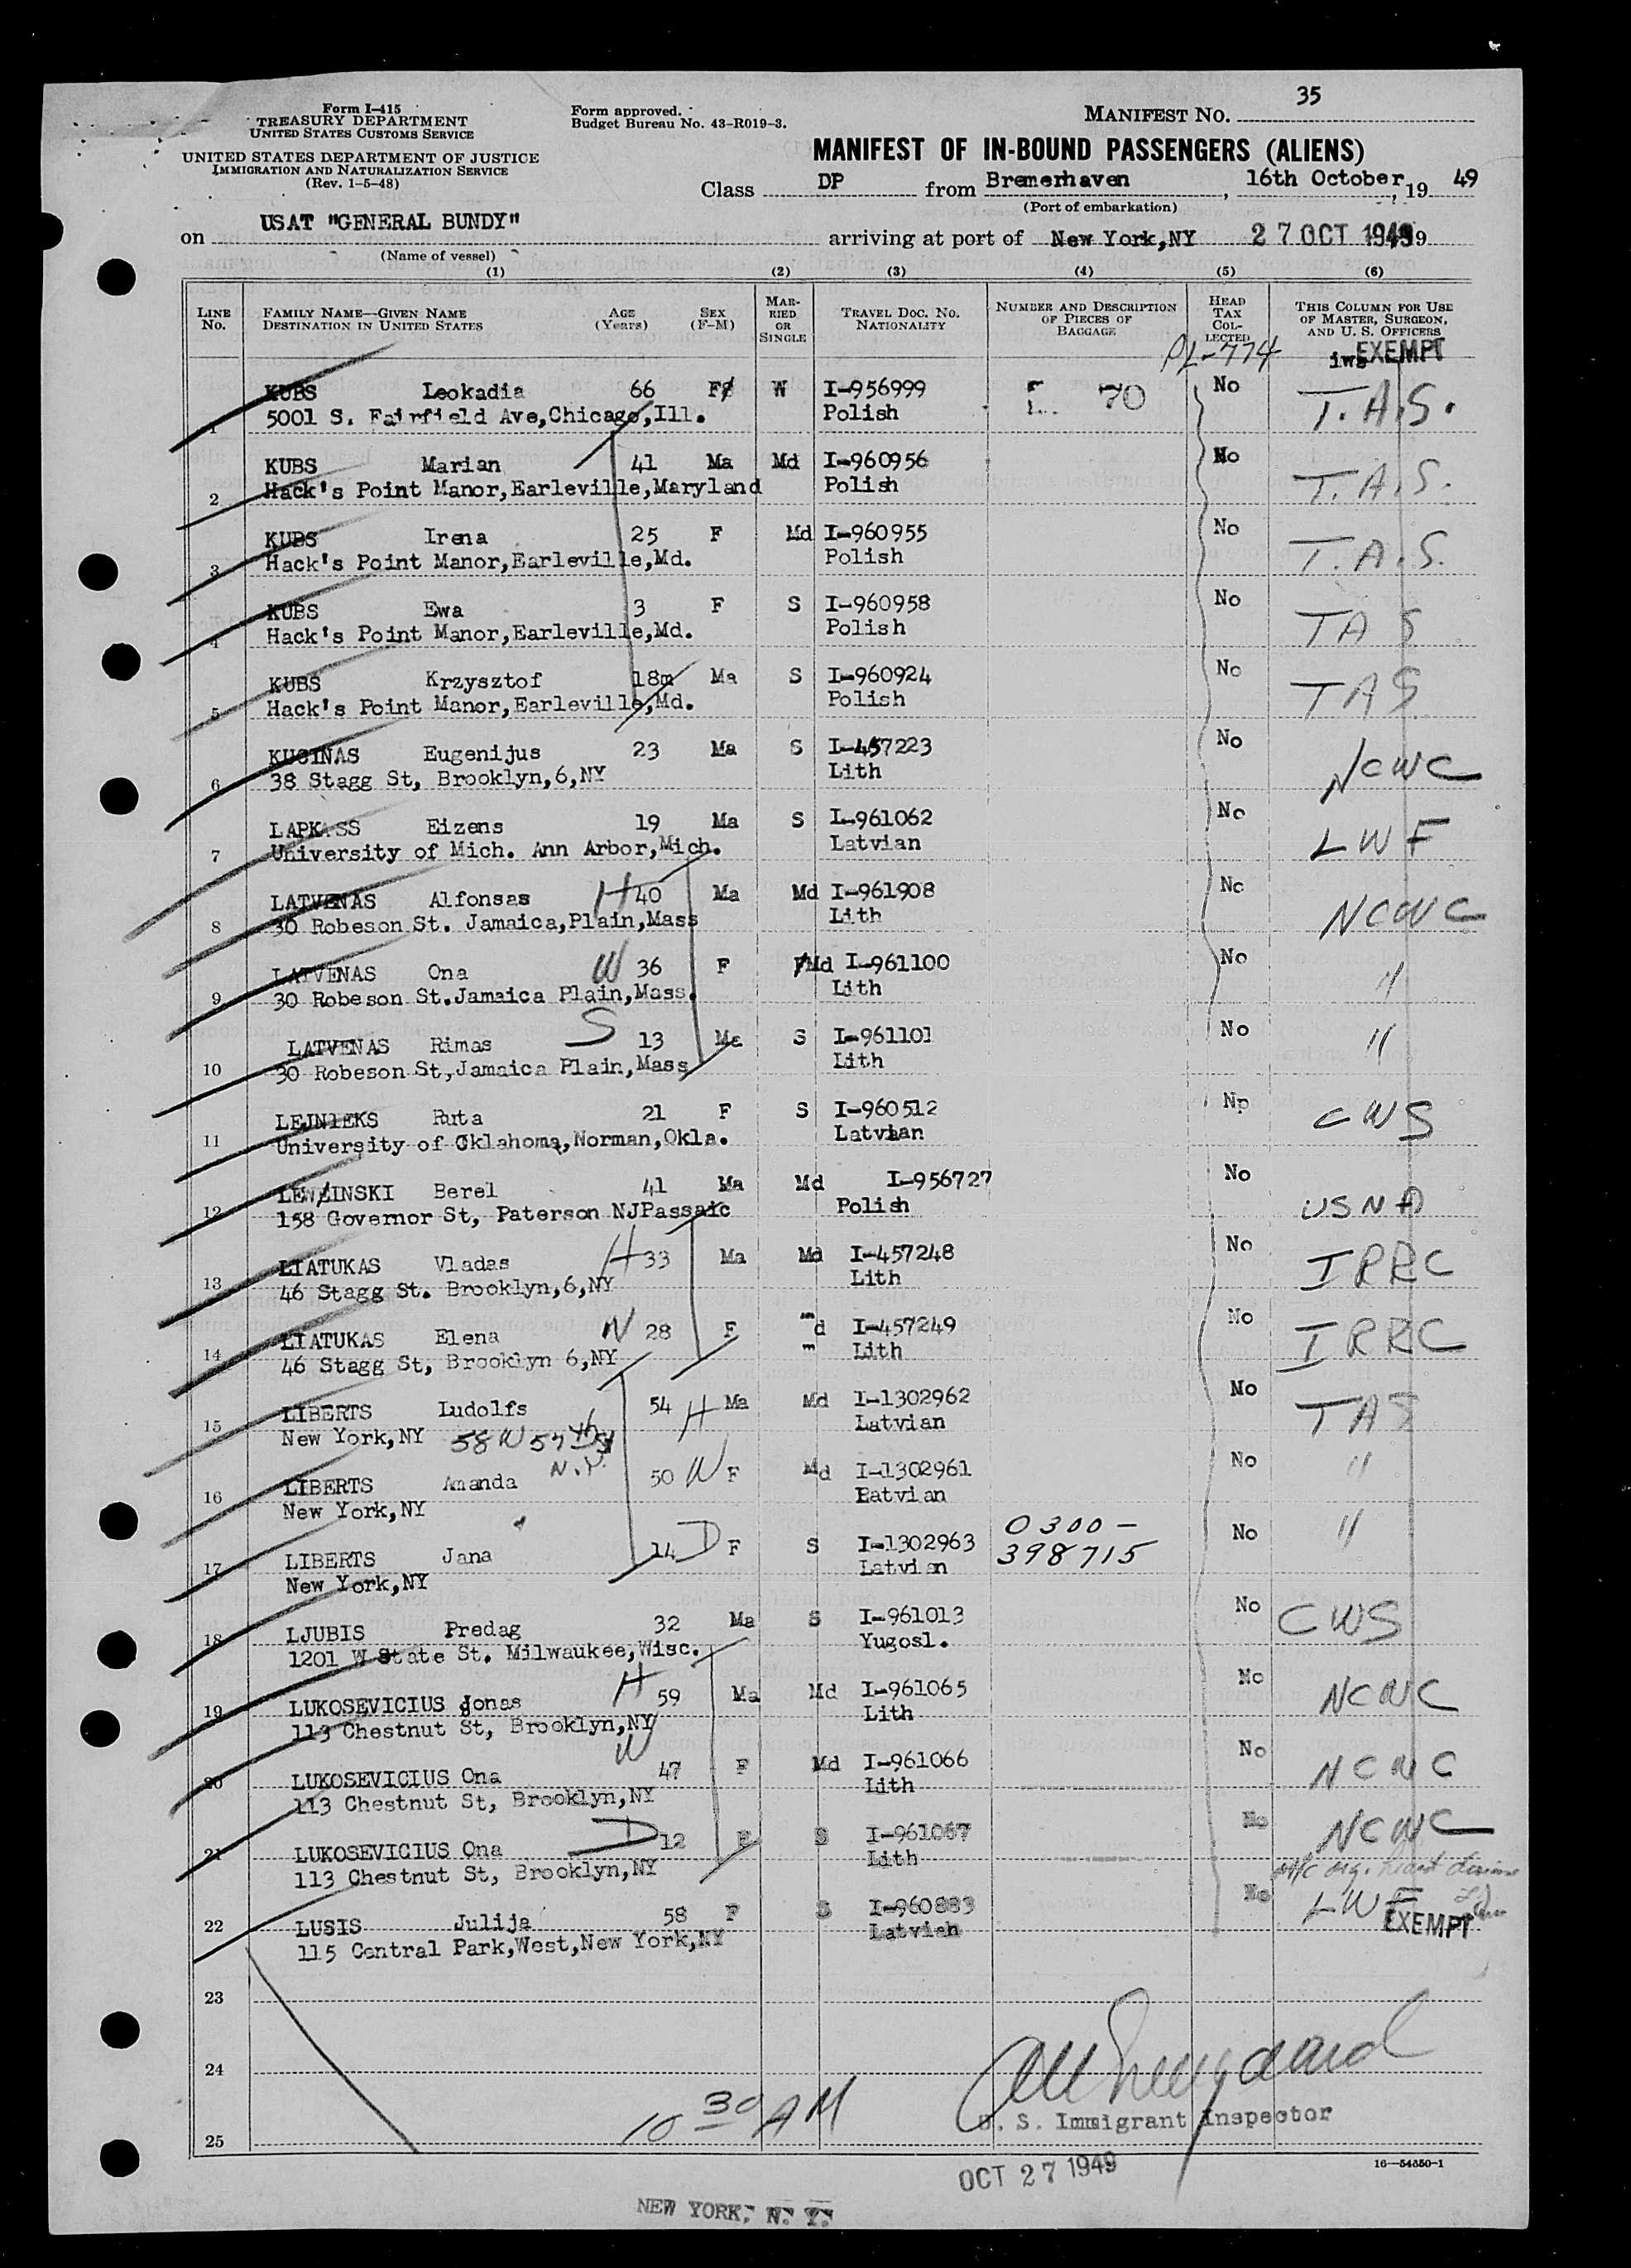 35
Form I-415
TREASURY DEPARTMENT
UNITED STATES CUSTOMS SERVICE
UNITED STATES DEPARTMENT OF JUSTICE
IMMIGRATION AND NATURALIZATION SERVICE
(Rev. 1-5-48)
Form approved.
Budget Bureau No. 43-R019-3.
MANIFEST NO.
MANIFEST OF IN-BOUND PASSENGERS (ALIENS)
Class DP from Bremerhaven, 16th October, 19 49
(Port of embarkation)
on USAT "GENERAL BUNDY" arriving at port of New York,NY 27 OCT 1949
(Name of vessel)
(1) (2) (3) (4) (5) (6)
LINE No. FAMILY NAME—GIVEN NAME DESTINATION IN UNITED STATES AGE (Years) SEX (F-M) MARRIED OR SINGLE TRAVEL DOC. NO. NATIONALITY NUMBER AND DESCRIPTION OF PIECES OF BAGGAGE HEAD TAX COLLECTED THIS COLUMN FOR USE OF MASTER, SURGEON, AND U. S. OFFICERS
PL-774 EXEMPT
1 KUBS Leokadia 66 F W I-956999 70 No T.A.S.
5001 S. Fairfield Ave,Chicago,Ill. Polish
2 KUBS Marian 41 Ma Md I-960956 No T.A.S.
Hack's Point Manor,Earleville,Maryland Polish
3 KUBS Irena 25 F Md I-960955 No T.A.S.
Hack's Point Manor,Earleville,Md. Polish
4 KUBS Ewa 3 F S I-960958 No TAS
Hack's Point Manor,Earleville,Md. Polish
5 KUBS Krzysztof 18m Ma S I-960924 No TAS
Hack's Point Manor,Earleville,Md. Polish
6 KUGINAS Eugenijus 23 Ma S I-457223 No NCWC
38 Stagg St, Brooklyn,6,NY Lith
7 LAPKASS Eizens 19 Ma S I-961062 No LWF
University of Mich. Ann Arbor,Mich. Latvian
8 LATVENAS Alfonsas H 40 Ma Md I-961908 No NCWC
30 Robeson St. Jamaica,Plain,Mass Lith
9 LATVENAS Ona W 36 F Md I-961100 No "
30 Robeson St.Jamaica Plain,Mass. Lith
10 LATVENAS Rimas S 13 Ma S I-961101 No "
30 Robeson St,Jamaica Plain,Mass Lith
11 LEJNIEKS Ruta 21 F S I-960512 No CWS
University of Oklahoma,Norman,Okla. Latvian
12 LEWINSKI Berel 41 Ma Md I-956727 No USNA
158 Governor St, Paterson NJPassaic Polish
13 LIATUKAS Vladas H 33 Ma Md I-457248 No IRRC
46 Stagg St. Brooklyn,6,NY Lith
14 LIATUKAS Elena W 28 F d I-457249 No IRRC
46 Stagg St, Brooklyn 6,NY Lith
15 LIBERTS Ludolfs 54 H Ma Md I-1302962 No TAS
New York,NY 58 W 57th St N.Y. Latvian
16 LIBERTS Amanda 50 W F Md I-1302961 No "
New York,NY Latvian
17 LIBERTS Jana 14 D F S I-1302963 0300-398715 No "
New York,NY Latvian
18 LJUBIS Predag 32 Ma S I-961013 No CWS
1201 W State St. Milwaukee,Wisc. Yugosl.
19 LUKOSEVICIUS Jonas H 59 Ma Md I-961065 No NCWC
113 Chestnut St, Brooklyn,NY Lith
20 LUKOSEVICIUS Ona W 47 F Md I-961066 No NCWC
113 Chestnut St, Brooklyn,NY Lith
21 LUKOSEVICIUS Ona D 12 F S I-961067 No NCWC
113 Chestnut St, Brooklyn,NY Lith
22 LUSIS Julija 58 F S I-960883 No LWF
115 Central Park,West,New York,NY Latvian EXEMPT
23
24
25
10 30 AM
U. S. Immigrant Inspector
16—54350-1
OCT 27 1949
NEW YORK, N. Y.